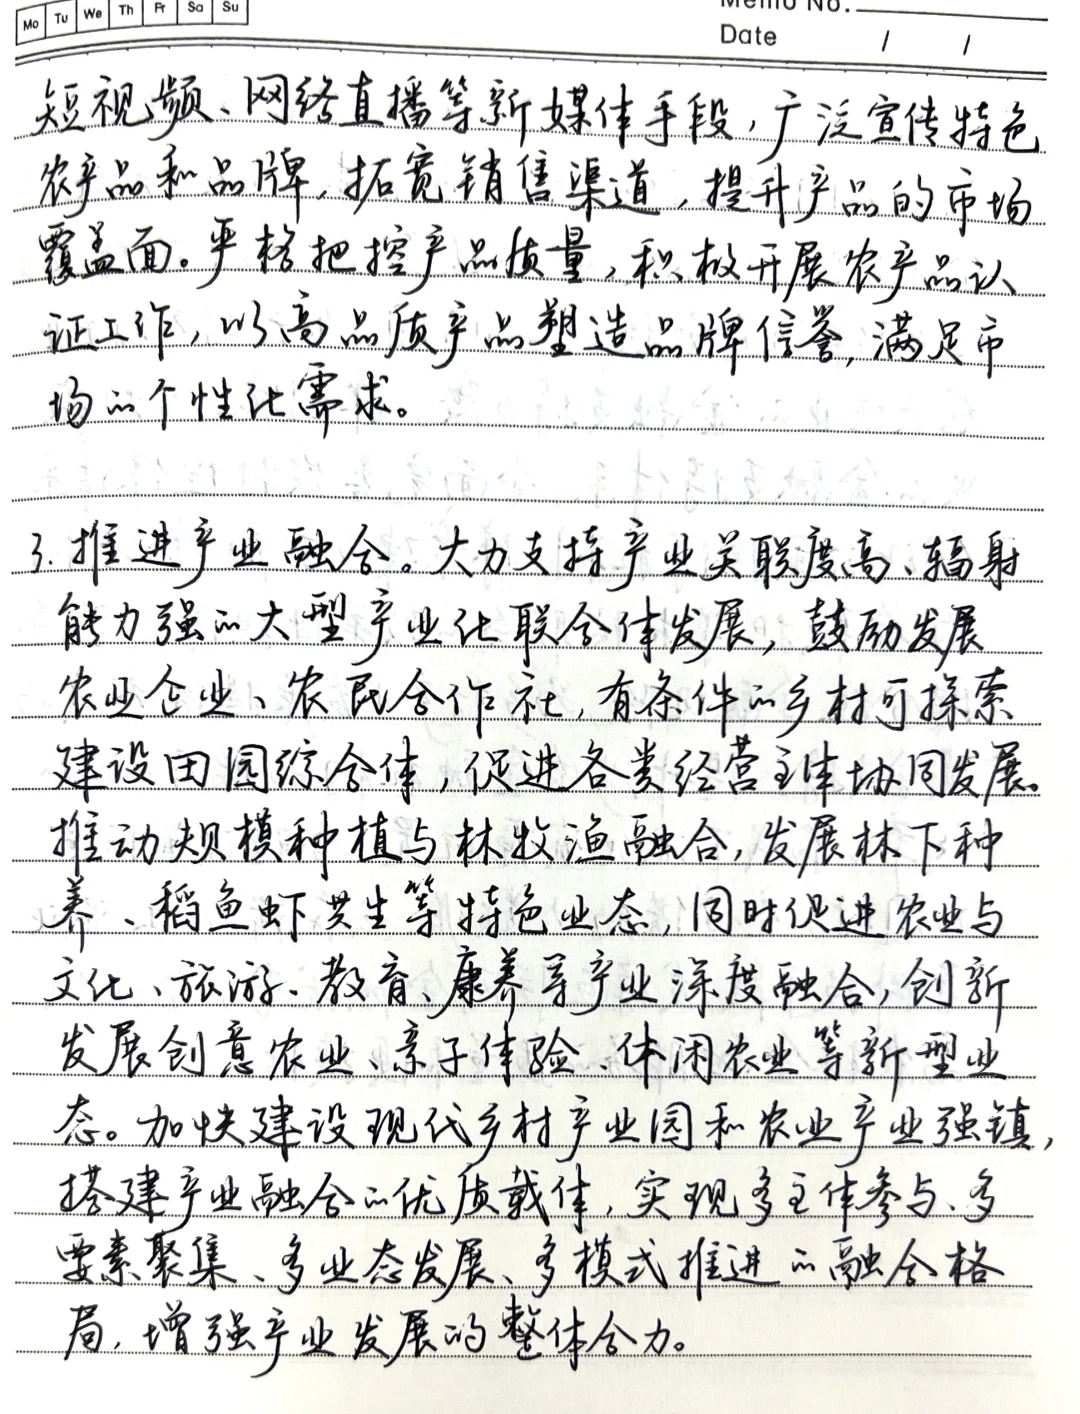 Mo Tu We Th Fr Sa Su
Memo No.
Date / /
短视频、网络直播等新媒体手段，广泛宣传特色
农产品和品牌，拓宽销售渠道，提升产品的市场
覆盖面。严格把控产品质量，积极开展农产品认
证工作，以高品质产品塑造品牌信誉，满足市
场的个性化需求。
3.推进产业融合。大力支持产业关联度高、辐射
能力强的大型产业化联合体发展，鼓励发展
农业企业、农民合作社，有条件的乡村可探索
建设田园综合体，促进各类经营主体协同发展。
推动规模种植与林牧渔融合，发展林下种
养、稻鱼虾共生等特色业态，同时促进农业与
文化、旅游、教育、康养等产业深度融合，创新
发展创意农业、亲子体验、休闲农业等新型业
态。加快建设现代乡村产业园和农业产业强镇，
搭建产业融合的优质载体，实现多主体参与、多
要素聚集、多业态发展、多模式推进的融合格
局，增强产业发展的整体合力。